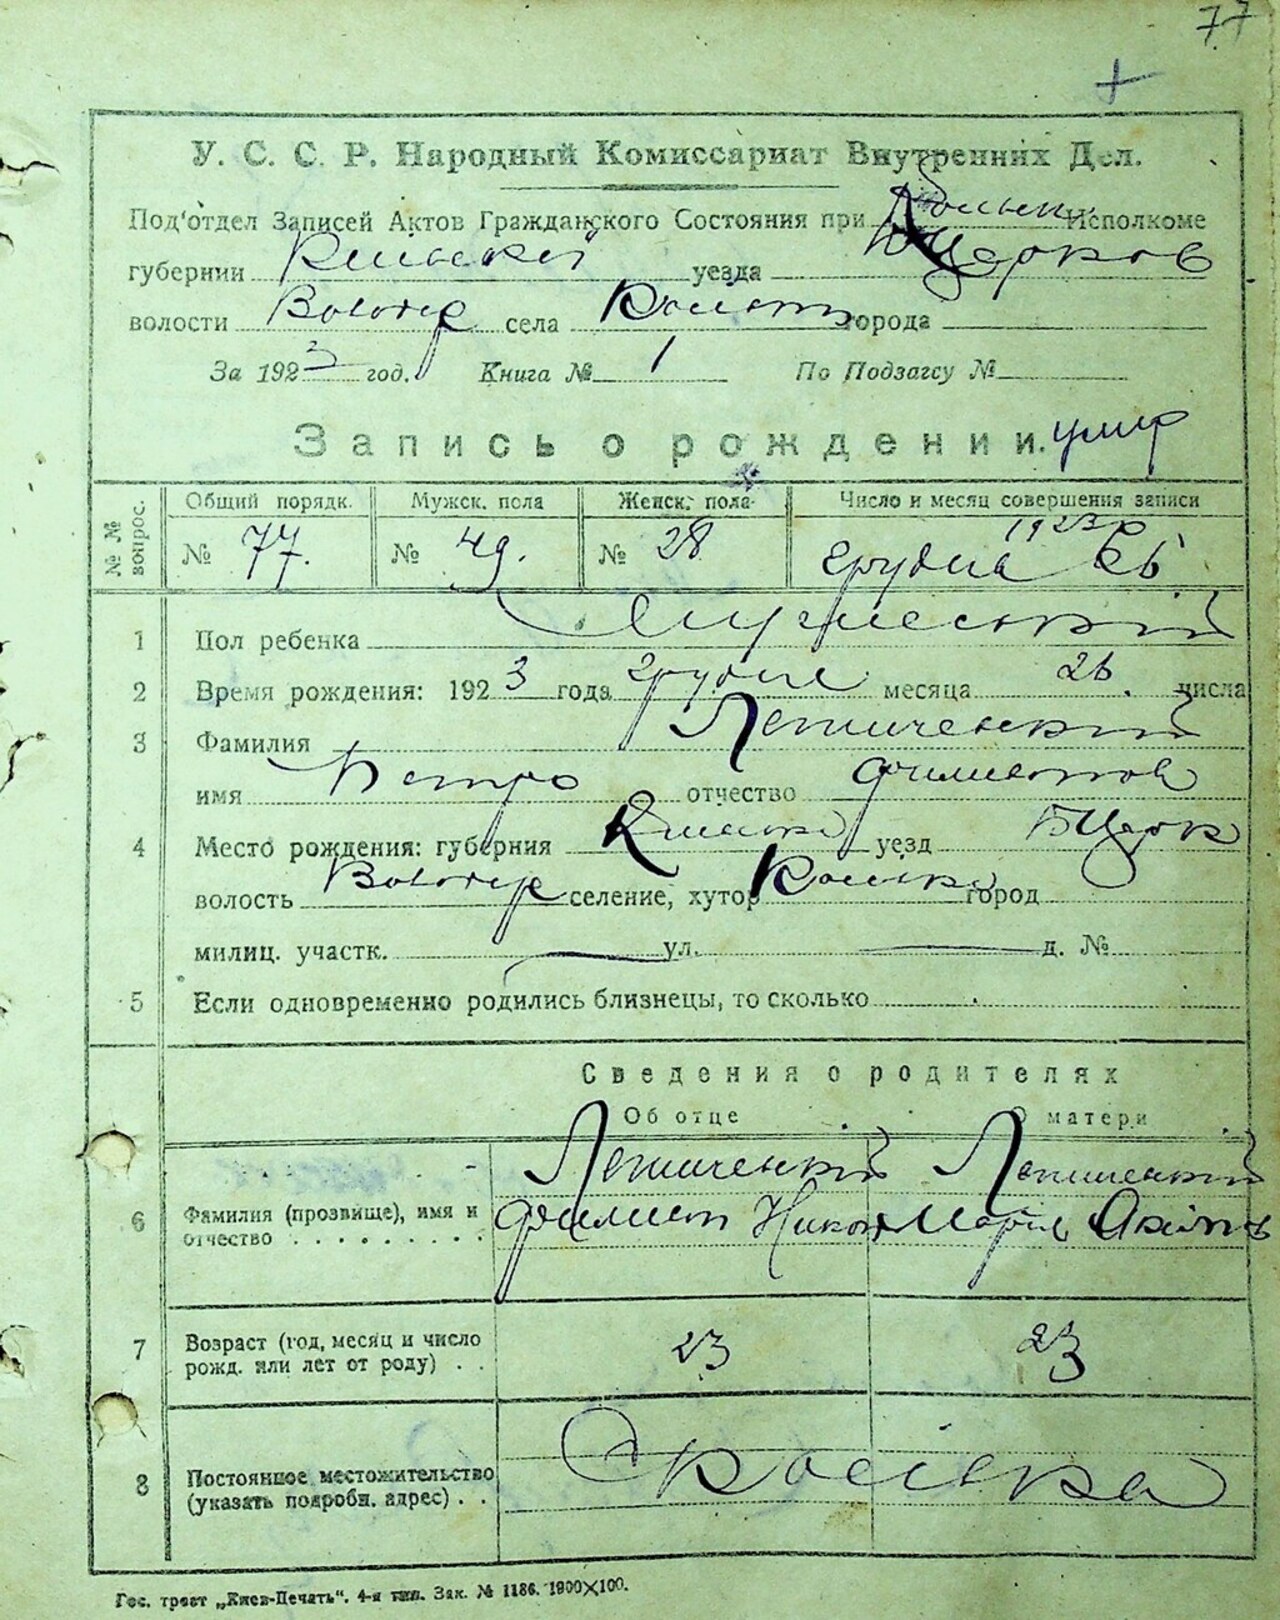 77
У. С. С. Р. Народный Комиссариат Внутренних Дел.
Под'отдел Записей Актов Гражданского Состояния при Исполкоме
губернии Киівскоі уезда БЦерков
волости Володар села города
За 1923 год. Книга № 1 По Подзагсу №
Запись о рождении. умер
№ № вопрос.
Общий порядк. Мужск. пола Женск. пола Число и месяц совершения записи
№ 77. № 49. № 28 1923 р грудня 26
1 Пол ребенка Мужеський
2 Время рождения: 1923 года грудня месяца 26. числа
3 Фамилия
имя Петро отчество Филимонов
4 Место рождения: губерния Киівска уезд БЦерк
волость Володар селение, хутор город
милиц. участк. ул. д. №
5 Если одновременно родились близнецы, то сколько
Сведения о родителях
Об отце О матери
6 Фамилия (прозвище), имя и отчество
Никон Марія
7 Возраст (год, месяц и число рожд. или лет от роду) 23 23
8 Постоянное местожительство (указать подробн. адрес)
Гос. трест „Киев-Печать". 4-я тип. Зак. № 1186. 1900×100.